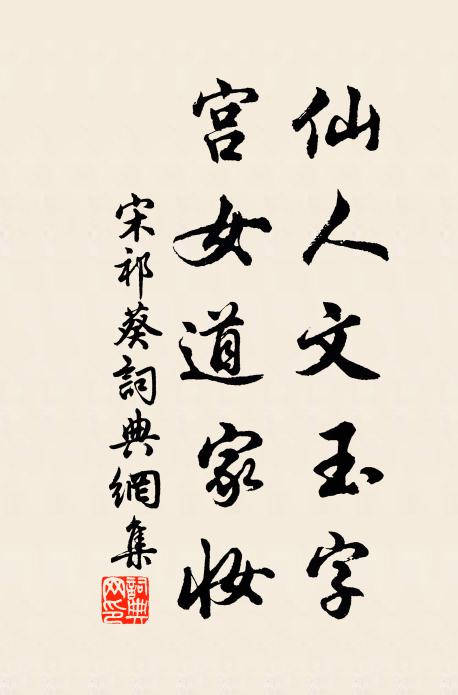 仙人文玉字
宫女道家妆
宋祁葵詞典網集
詞典网印